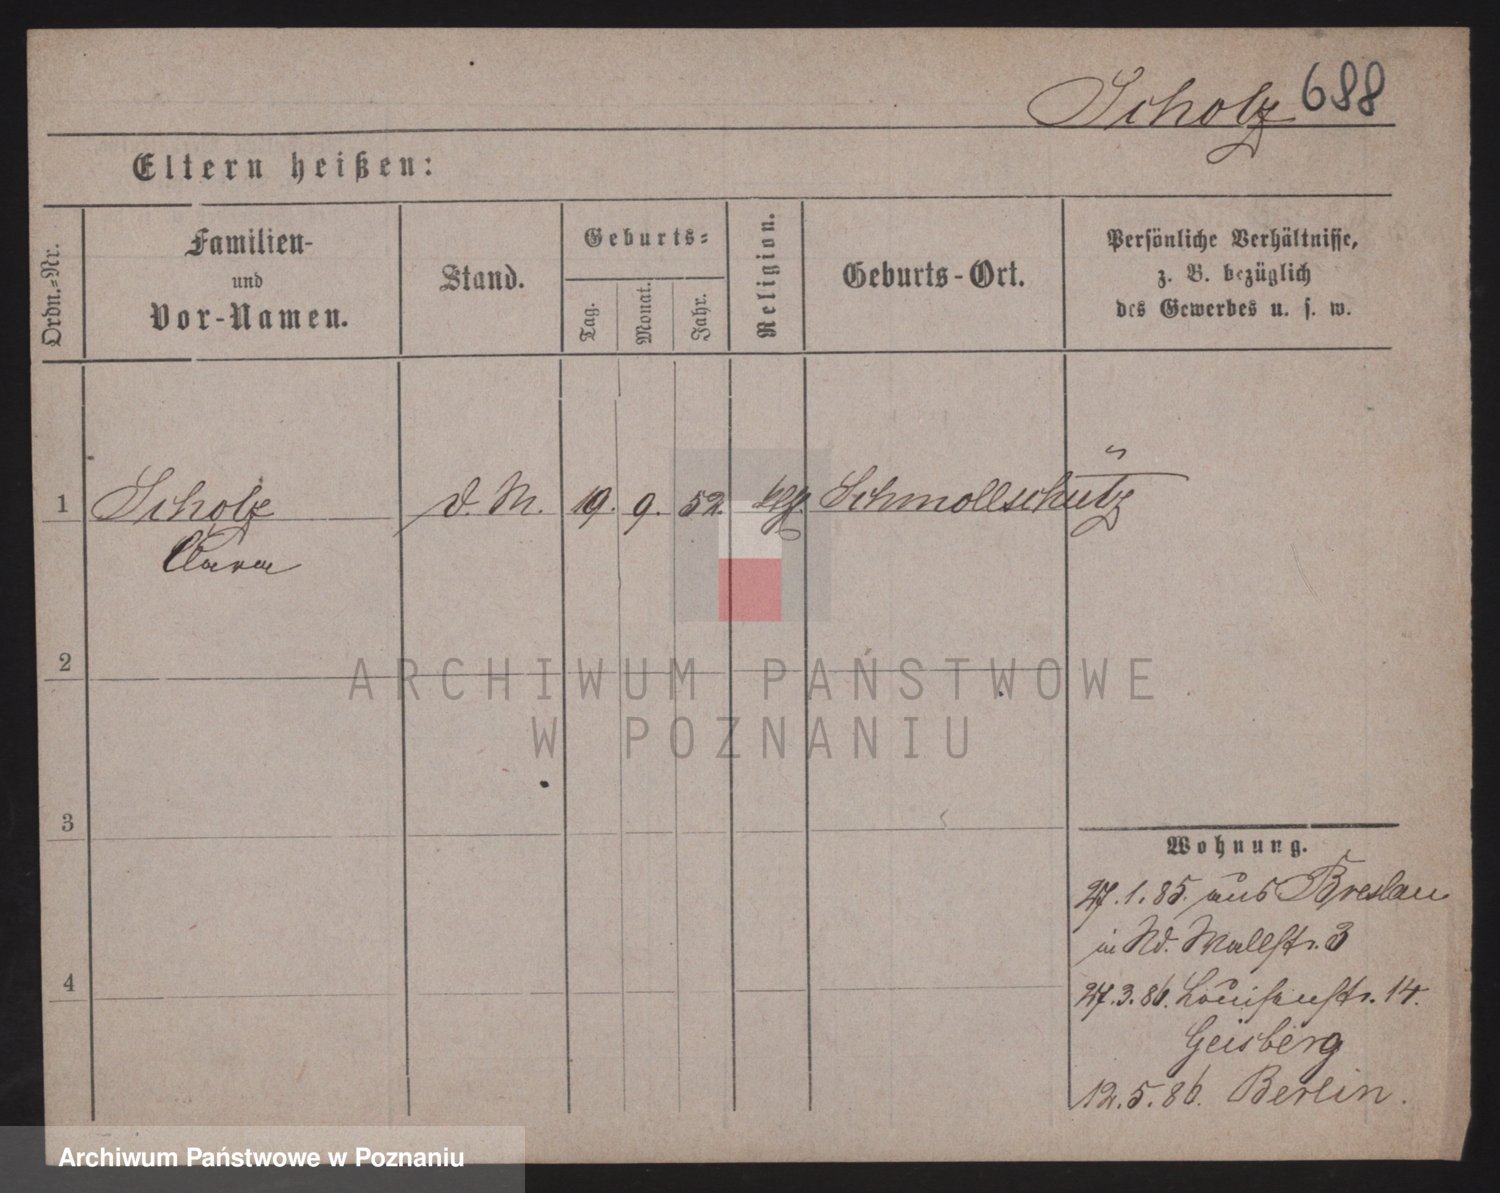 Scholz 688
Eltern heißen:
Ordn.=Nr.
Familien-
und
Vor-Namen.
Stand.
Geburts=
Tag.
Monat.
Jahr.
Religion.
Geburts-Ort.
Persönliche Verhältnisse,
z. B. bezüglich
des Gewerbes u. s. w.
1 Scholz d. M. 19. 9. 52. Schmollschütz
Clara
2
ARCHIWUM PAŃSTWOWE
W POZNANIU
3
Wohnung.
27.1.85. aus Breslau
in Nd. Wallstr. 3
4
27.3.86. Louisenstr. 14.
Geisberg
12.5.86. Berlin.
Archiwum Państwowe w Poznaniu